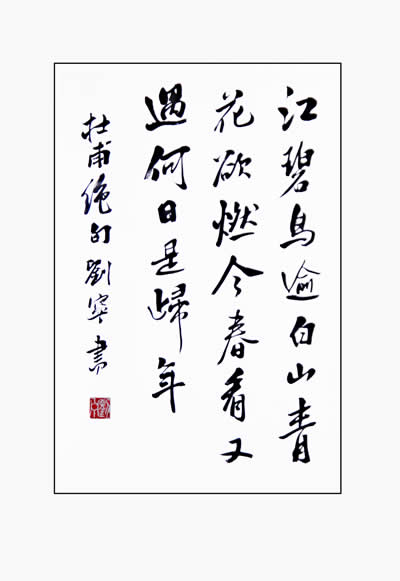 江碧鳥逾白山青
花欲燃今春看又
過何日是歸年
杜甫絶句劉寧書